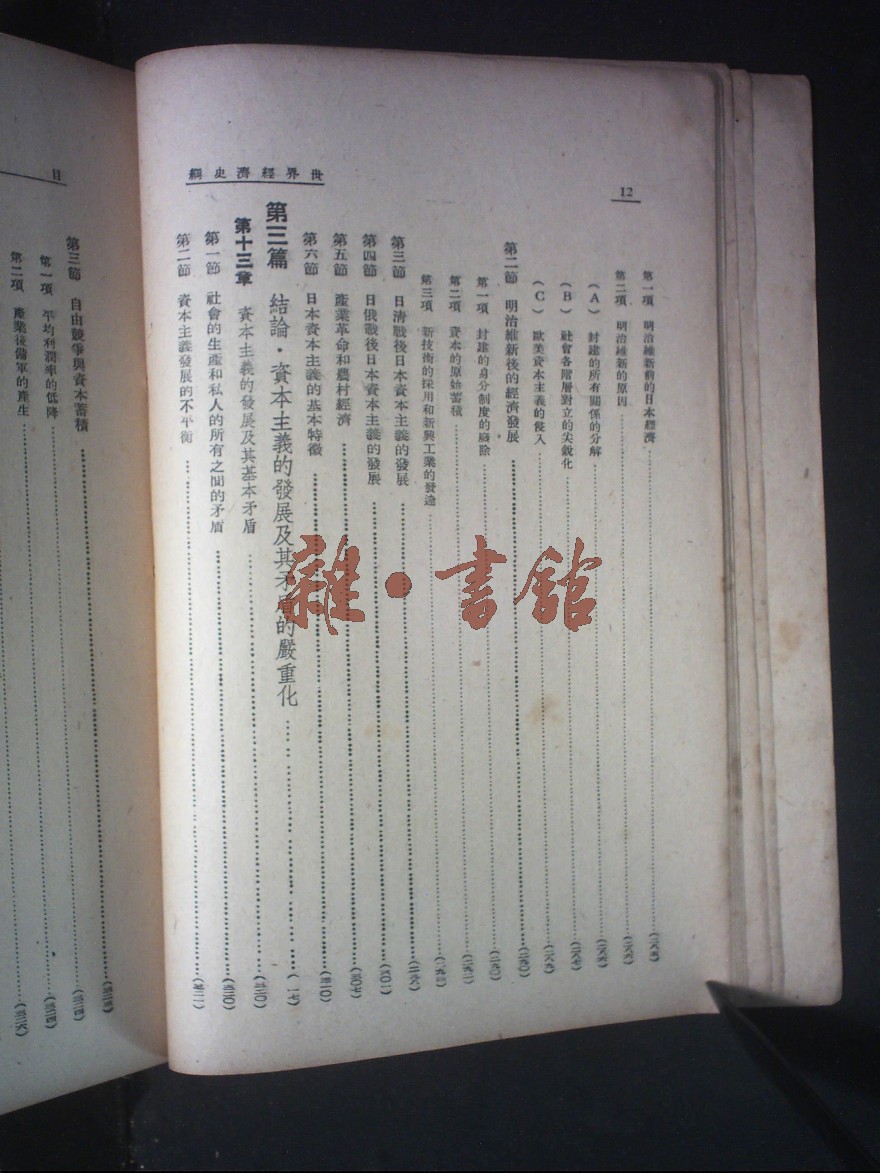 12
世界經濟史綱
第一項 明治維新前的日本經濟
第二項 明治維新的原因
(A) 封建的所有關係的分解
(B) 社會各階層對立的尖銳化
(C) 歐美資本主義的侵入
第二節 明治維新後的經濟發展
第一項 封建的身分制度的廢除
第二項 資本的原始蓄積
第三項 新技術的採用和新興工業的發達
第三節 日清戰後日本資本主義的發展
第四節 日俄戰後日本資本主義的發展
第五節 產業革命和農村經濟
第六節 日本資本主義的基本特徵
第三篇 結論・資本主義的發展及其矛盾的嚴重化
第十三章 資本主義的發展及其基本矛盾
第一節 社會的生產和私人的所有之間的矛盾
第二節 資本主義發展的不平衡
目
第三節 自由競爭與資本蓄積
第一項 平均利潤率的低降
第二項 產業後備軍的產生
雜・書館